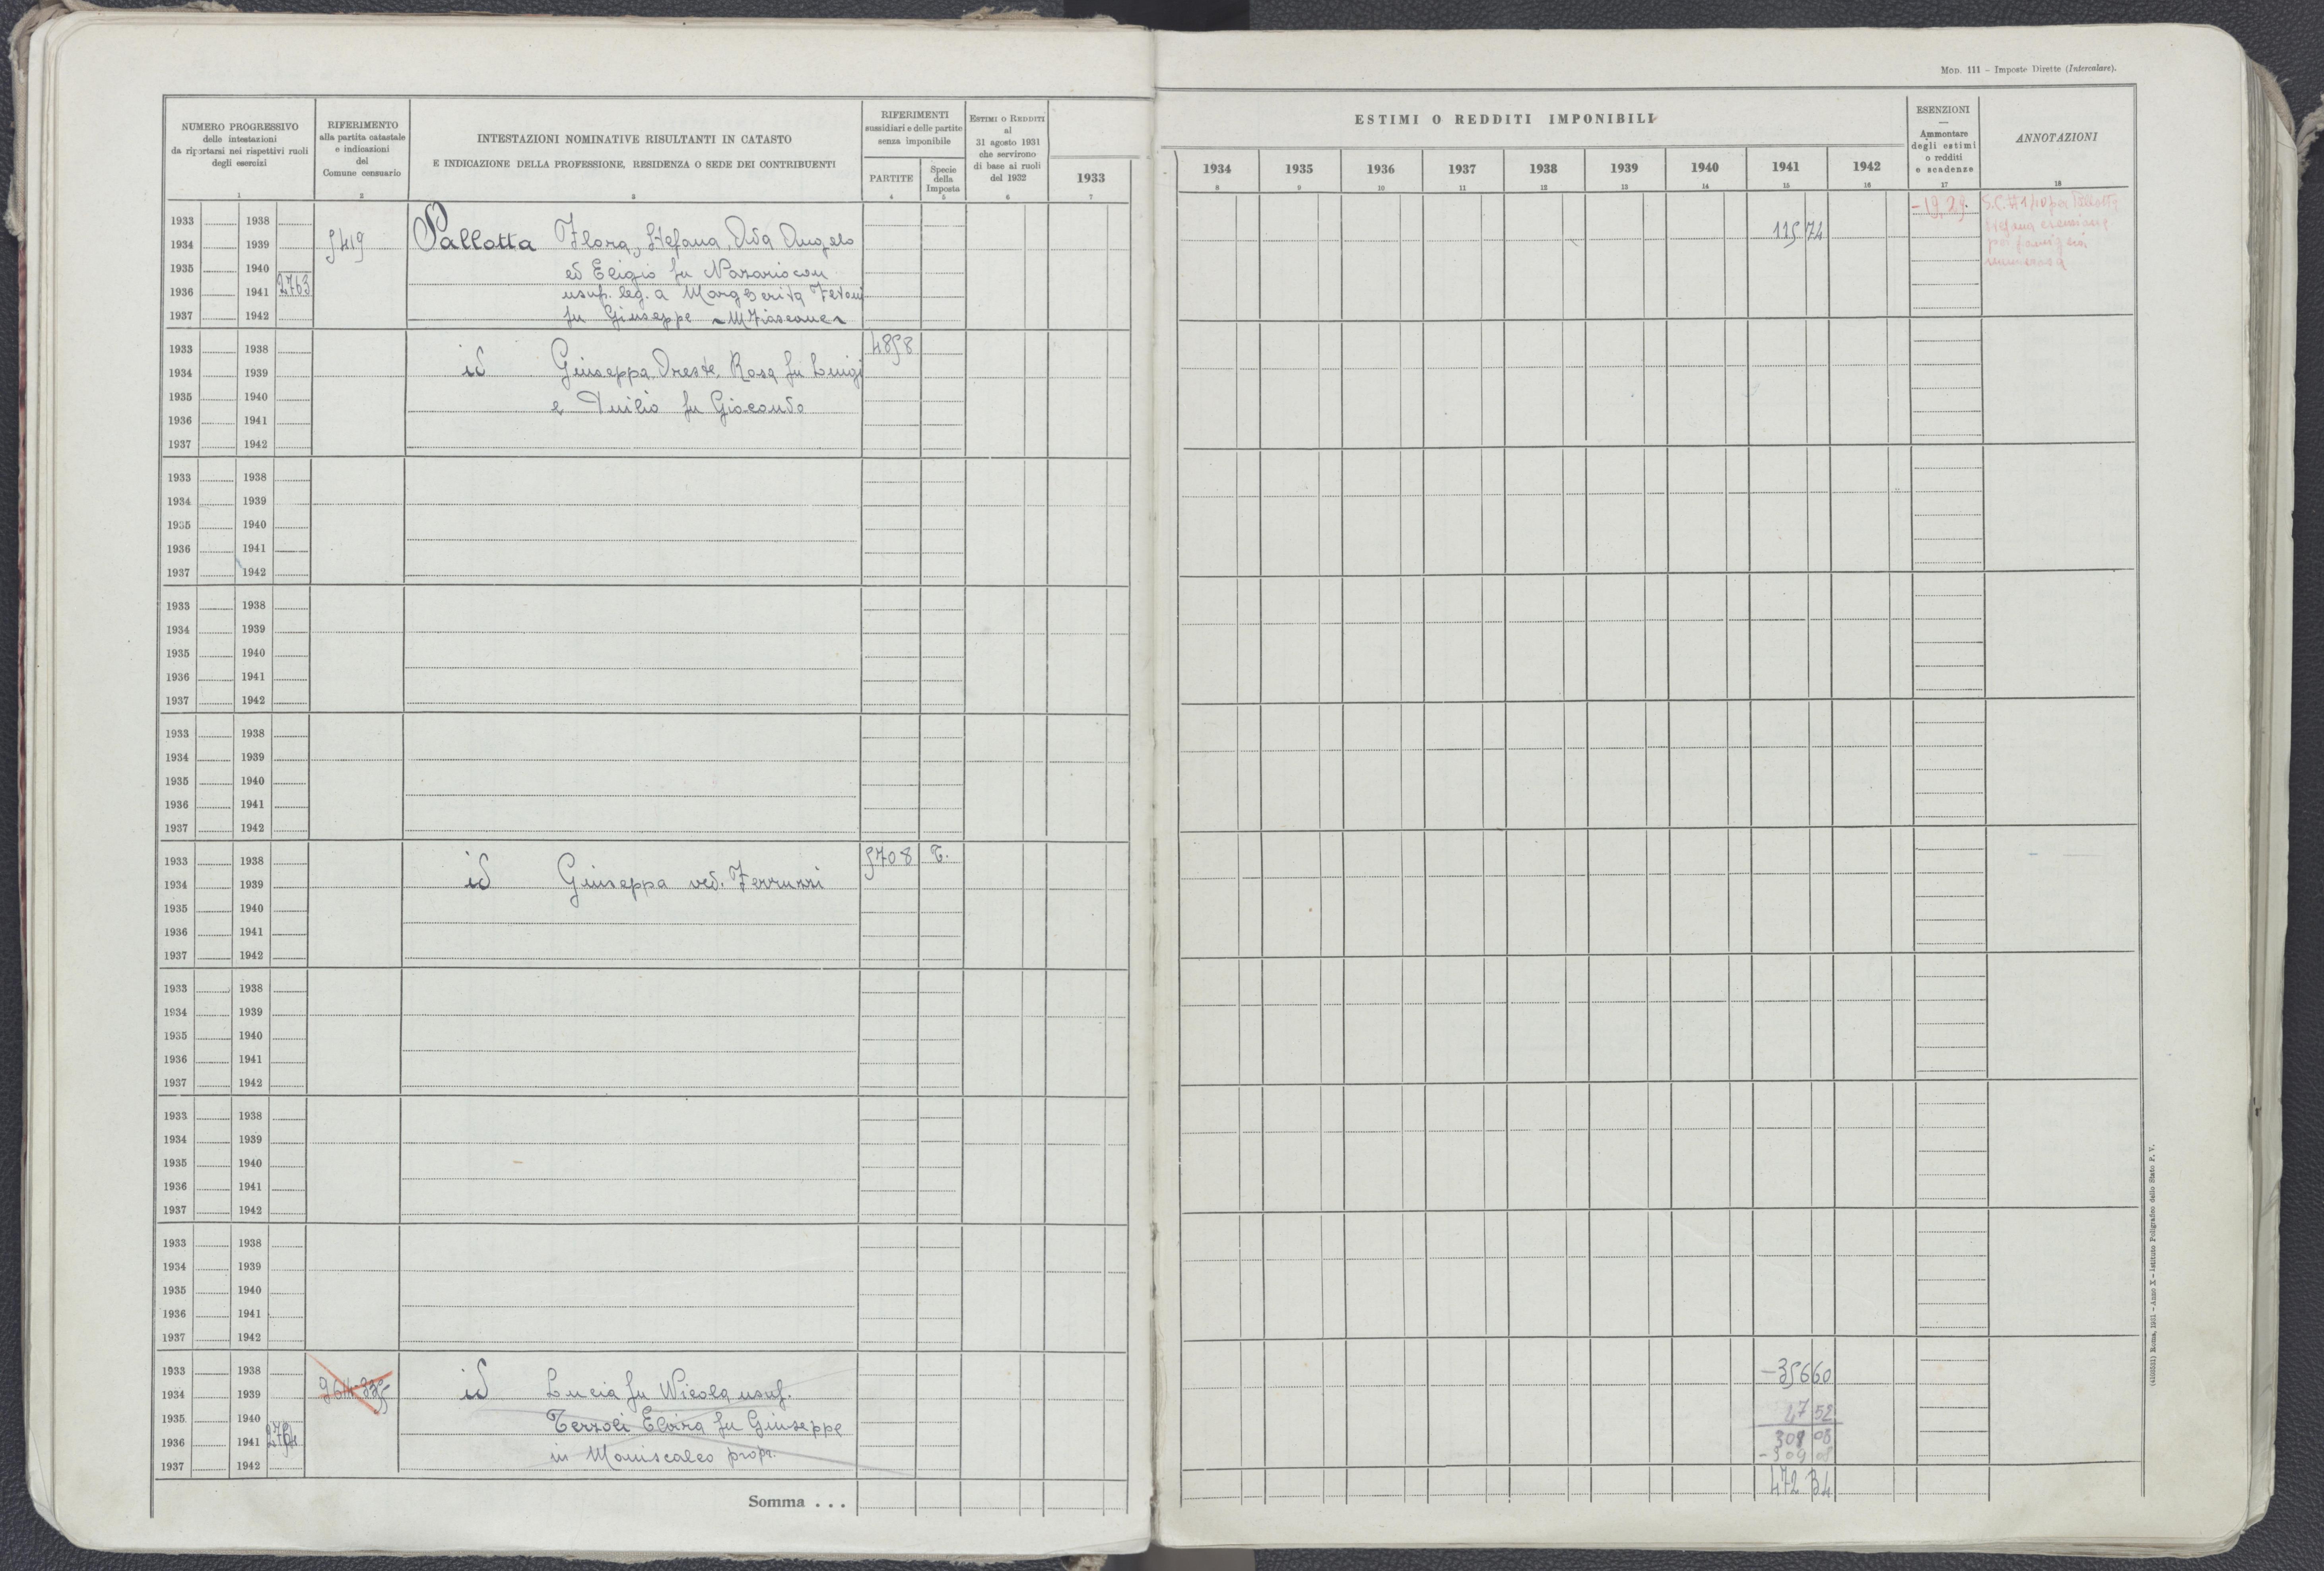 Mod. 111 - Imposte Dirette (Intercalare).
NUMERO PROGRESSIVO
delle intestazioni
da riportarsi nei rispettivi ruoli
degli esercizi
1
RIFERIMENTO
alla partita catastale
e indicazioni
del
Comune censuario
2
INTESTAZIONI NOMINATIVE RISULTANTI IN CATASTO
E INDICAZIONE DELLA PROFESSIONE, RESIDENZA O SEDE DEI CONTRIBUENTI
3
RIFERIMENTI
sussidiari e delle partite
senza imponibile
PARTITE
4
Specie
della
Imposta
5
ESTIMI O REDDITI
al
31 agosto 1931
che servirono
di base ai ruoli
del 1932
6
1933
7
ESTIMI O REDDITI IMPONIBILI
1934 1935 1936 1937 1938 1939 1940 1941 1942
8 9 10 11 12 13 14 15 16
ESENZIONI
—
Ammontare
degli estimi
o redditi
e scadenze
17
ANNOTAZIONI
18
1933 1938
1934 1939
1935 1940
1936 1941 2763
1937 1942
5419
Pallotta Flora, Stefana, Ada Angelo
ed Eligio fu Nazario con
usuf. leg. a Margherita
fu Giuseppe
115 74
-19,29.
Stefana esenzione
per famiglia
numerosa
1933 1938
1934 1939
1935 1940
1936 1941
1937 1942
id Giuseppa, Oreste, Rosa fu Luigi
e Duilio fu Giocondo
4858
1933 1938
1934 1939
1935 1940
1936 1941
1937 1942
1933 1938
1934 1939
1935 1940
1936 1941
1937 1942
1933 1938
1934 1939
1935 1940
1936 1941
1937 1942
1933 1938
1934 1939
1935 1940
1936 1941
1937 1942
id Giuseppa ved. Ferruzzi
5708 T.
1933 1938
1934 1939
1935 1940
1936 1941
1937 1942
1933 1938
1934 1939
1935 1940
1936 1941
1937 1942
1933 1938
1934 1939
1935 1940
1936 1941
1937 1942
1933 1938
1934 1939
1935 1940
1936 1941
1937 1942
id Lucia fu Nicola usuf.
Terzoli Elvira fu Giuseppe
in Maniscalco propr.
-356 60
47 52
309 08
-309 08
Somma . . .
472 34
(4100531) Roma, 1931 - Anno X - Istituto Poligrafico dello Stato P. V.